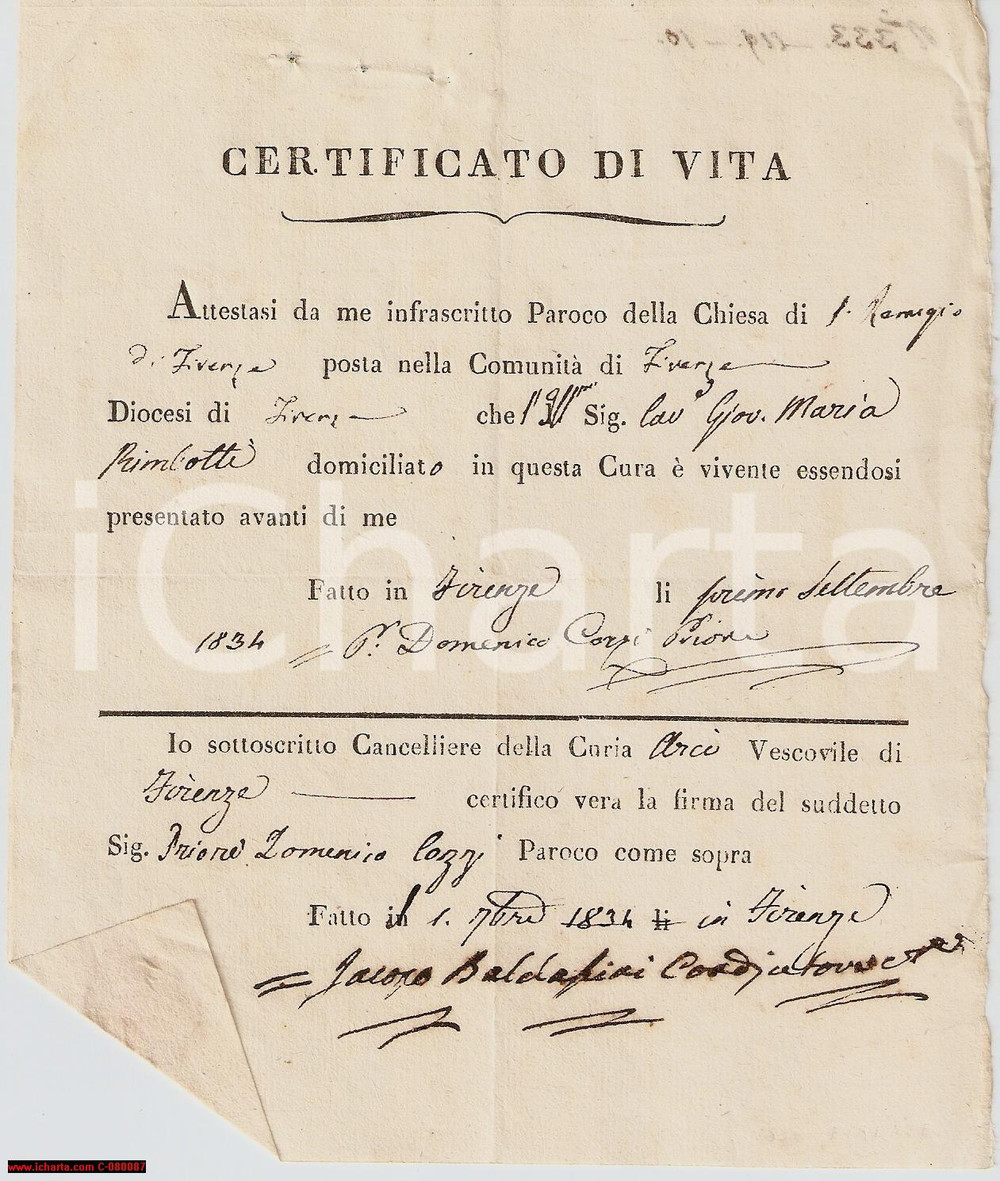 CERTIFICATO DI VITA
Attestasi da me infrascritto Paroco della Chiesa di S. Remigio
di Firenze posta nella Comunità di Firenze
Diocesi di Firenze che l'Illmo Sig. Cav. Giov. Maria
Rimbotti domiciliato in questa Cura è vivente essendosi
presentato avanti di me
Fatto in Firenze li primo Settembre
1834 = P. Domenico Cozzi Priore
Io sottoscritto Cancelliere della Curia Arci Vescovile di
Firenze certifico vera la firma del suddetto
Sig. Priore Domenico Cozzi Paroco come sopra
Fatto il 1. 7bre 1834 li in Firenze
= Jacopo Baldasini
iCharta
www.icharta.com C-080087